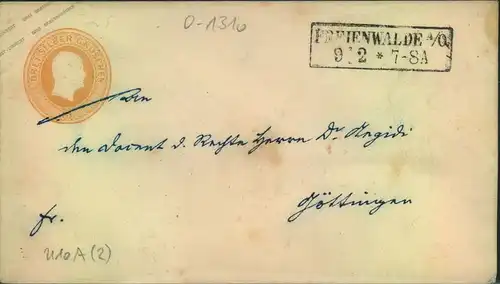 0-1310
DREI SILBER GROSCHEN
FREIENWALDE a/O.
9. 2 * 7-8A
An
den Docent d. Rechte Herrn Dr. Aegidi
Göttingen
fr.
U10A(2)